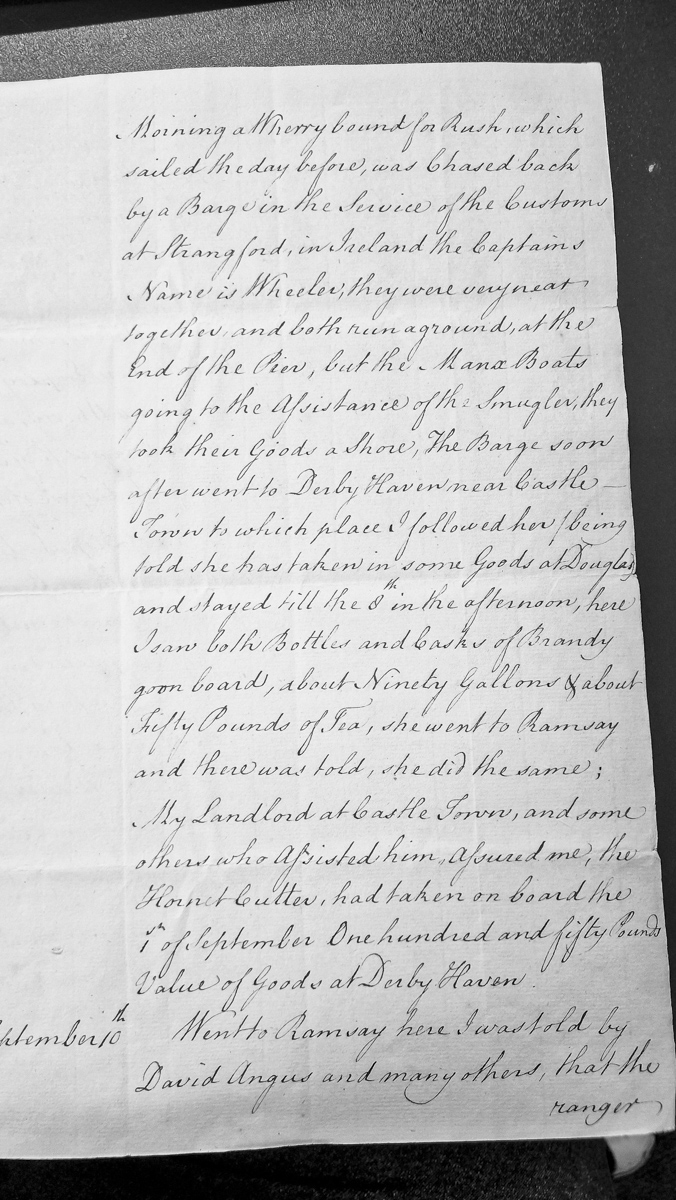 Moining a Wherry bound for Rush, which
sailed the day before, was Chased back
by a Barge in the Service of the Customs
at Strangford, in Ireland the Captains
Name is Wheeler, they were very neat
together, and both run aground, at the
End of the Pier, but the Manx Boats
going to the Assistance of the Smugler, they
took their Goods a Shore, The Barge soon
after went to Derby Haven near Castle –
Town to which place I followed her (being
told she has taken in some Goods at Douglas)
and stayed till the 8th in the afternoon, here
I saw both Bottles and Casks of Brandy
go on board, about Ninety Gallons & about
Fifty Pounds of Tea, she went to Ramsay
and there was told, she did the same;
My Landlord at Castle Town, and some
others who Assisted him, Assured me, the
Hornet Cutter, had taken on board the
1st of September One hundred and fifty Pounds
Value of Goods at Derby Haven.
ptember 10th Went to Ramsay here I was told by
David Angus and many others, that the
ranger